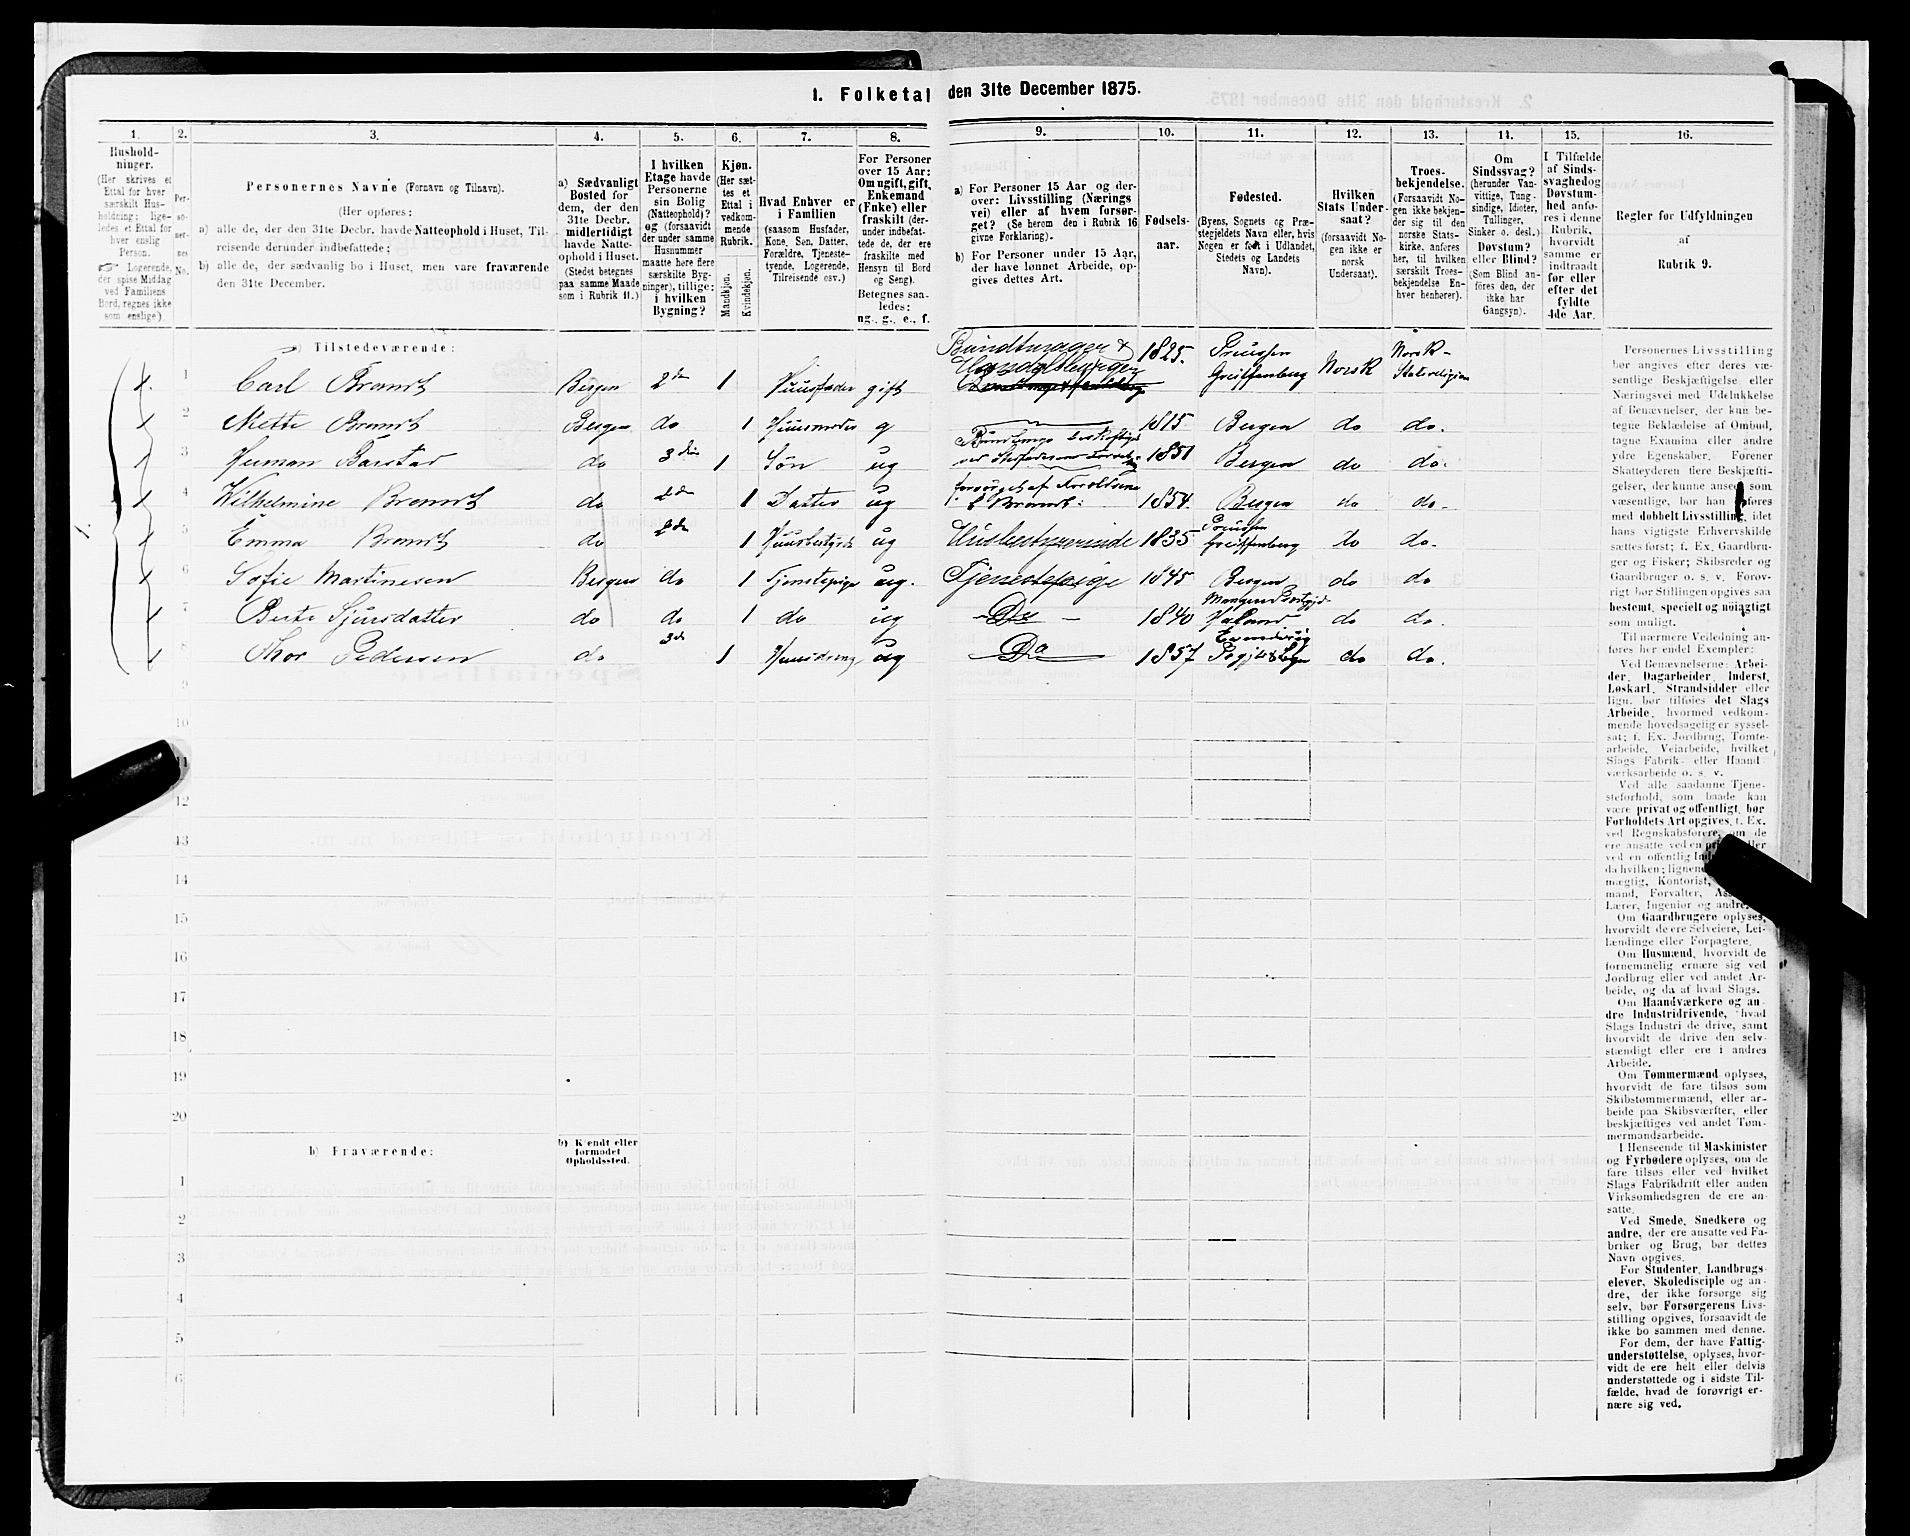 1. Folketal den 31te December 1875.
1.
Hushold-
ninger.
(Her skrives et
Ettal for hver
særskilt Hus-
holdning; lige-
ledes et Ettal for
hver enslig
Person.
Logerende,
der spise Middag
ved Familiens
Bord, regnes ikke
som enslige).
2.
Per-
so-
ner-
nes
No.
3.
Personernes Navne (Fornavn og Tilnavn).
(Her opføres:
a) alle de, der den 31te Decbr. havde Natteophold i Huset, Til-
reisende derunder indbefattede;
b) alle de, der sædvanlig bo i Huset, men vare fraværende
den 31te December.
4.
a) Sædvanligt
Bosted for
dem, der den
31te Decbr.
midlertidigt
havde Natte-
ophold i Huset.
(Stedet betegnes
paa samme Maade
som i Rubrik 11.)
5.
I hvilken
Etage havde
Personerne
sin Bolig
(Natteophold)?
og (forsaavidt
der under samme
Husnummer
maatte høre flere
særskilte Byg-
ninger), tillige:
i hvilken
Bygning?
6.
Kjøn.
(Her sæt-
tes et
Ettal i
vedkom-
mende
Rubrik.
Mandkjøn.
Kvindekjøn.
7.
Hvad Enhver er
i Familien
(saasom Husfader,
Kone, Søn, Datter,
Forældre, Tjeneste-
tyende, Logerende,
Tilreisende osv.)
8.
For Personer
over 15 Aar:
Om ugift, gift,
Enkemand
(Enke) eller
fraskilt (der-
under indbefat-
tede de, der ere
fraskilte med
Hensyn til Bord
og Seng).
Betegnes saa-
ledes:
ug., g., e., f.
9.
a) For Personer 15 Aar og der-
over: Livsstilling (Nærings
vei) eller af hvem forsør-
get? (Se herom den i Rubrik 16
givne Forklaring).
b) For Personer under 15 Aar,
der have lønnet Arbeide, op-
gives dettes Art.
10.
Fødsels-
aar.
11.
Fødested.
(Byens, Sognets og Præ-
stegjeldets Navn eller, hvis
Nogen er født i Udlandet,
Stedets og Landets
Navn).
12.
Hvilken
Stats Under-
saat?
(forsaavidt No-
gen ikke er
norsk
Undersaat).
13.
Troes-
bekjendelse.
(Forsaavidt No-
gen ikke bekjen-
der sig til den
norske Stats-
kirke, anføres
her, til hvilken
særskilt Troes-
bekjendelse En-
hver henhører).
14.
Om
Sindssvag?
(herunder Van-
vittige, Tung-
sindige, Idioter,
Tullinger,
Sinker o. desl.)
Døvstum?
eller Blind?
(Som Blind an-
føres den, der
ikke har
Gangsyn).
15.
I Tilfælde
af Sinds-
svaghed og
Døvstum-
hed anfø-
res i denne
Rubrik,
hvorvidt
samme er
indtraadt
før eller
efter det
fyldte
4de Aar.
16.
Regler for Udfyldningen
af
Rubrik 9.
a) Tilstedeværende:
1 Carl Brandt Bergen 2de 1 Huusfader gift Bundtmager & Handelsborger 1825. Preussen Greiffenberg Norsk Norsk Statsreligion
2 Mette Brandt Bergen do 1 Huusmoder g 1815 Bergen do do.
3 Herman Barstad do 3die 1 Søn ug 1851 Bergen do do.
4 Wilhelmine Brandt do 2de 1 Datter ug forsørget af Forældrene C Brandt 1854. Bergen do do.
5 Emma Brandt do 2de 1 ug Husbestyrerinde 1835 Preussen Greiffenberg do do.
6 Sofie Martinesen Bergen do 1 Tjenstepige ug. Tjenestepige 1845 Bergen do do
7 Berte Sjursdatter do do 1 do ug Do 1840 do do.
8 Thor Pedersen do 3de 1 Huusdreng ug Do 1857 do do.
9
10
11
12
13
14
15
16
17
18
19
20
b) Fraværende:
b) Kjendt eller
formodet
Opholdssted.
1
2
3
4
5
6
Personernes Livsstilling
bør angives efter deres væ-
sentlige Beskjæftigelse eller
Næringsvei med Udelukkelse
af Benævnelser, der kun be-
tegne Beklædelse af Ombud,
tagne Examina eller andre
ydre Egenskaber. Forener
Skatteyderen flere Beskjæfti-
gelser, der kunne ansees som
væsentlige, bør han opføres
med dobbelt Livsstilling, idet
hans vigtigste Erhvervskilde
sættes først; f. Ex. Gaardbru-
ger og Fisker; Skibsreder og
Gaardbruger o. s. v. Forøv-
rigt bør Stillingen opgives saa
bestemt, specielt og nøiagtigt
som muligt.
Til nærmere Veiledning an-
føres her endel Exempler:
Ved Benævnelserne: Arbei-
der, Dagarbeider, Inderst,
Løskarl, Strandsidder eller
lign. bør tilføies det Slags
Arbeide, hvormed vedkom-
mende hovedsagelig er syssel-
sat; f. Ex. Jordbrug, Tomte-
arbeide, Veiarbeide, hvilket
Slags Fabrik- eller Haand-
værksarbeide o. s. v.
Ved alle saadanne Tjene-
steforhold, som baade kan
være privat og offentligt, bør
Forholdets Art opgives, t. Ex.
ved Regnskabsførere, om de
ere ansatte ved en
ved en offentlig
da hvilken;
mægtig, Kontorist,
mand, Forvalter,
Lærer, Ingeniør og andre.
Om Gaardbrugere oplyses,
hvorvidt de ere Selveiere, Lei-
lændinge eller Forpagtere.
Om Husmænd, hvorvidt de
fornemmelig ernære sig ved
Jordbrug eller ved andet Ar-
beide, og da af hvad Slags.
Om Haandværkere og an-
dre Industridrivende, hvad
Slags Industri de drive, samt
hvorvidt de drive den selv-
stændigt eller ere i andres
Arbeide.
Om Tømmermænd oplyses,
hvorvidt de fare tilsøs som
Skibstømmermænd, eller ar-
beide paa Skibsværfter, eller
beskjæftiges ved andet Tøm-
mermandsarbeide.
I Henseende til Maskinister
og Fyrbødere oplyses, om de
fare tilsøs eller ved hvilket
Slags Fabrikdrift eller anden
Virksomhedsgren de ere an-
satte.
Ved Smede, Snedkere og
andre, der ere ansatte ved Fa-
briker og Brug, bør dettes
Navn opgives.
For Studenter, Landbrugs-
elever, Skoledisciple og an-
dre, der ikke forsørge sig
selv, bør Forsørgerens Livs-
stilling opgives, forsaavidt de
ikke bo sammen med denne.
For dem, der have Fattig-
understøttelse, oplyses, hvor-
vidt de ere helt eller delvis
understøttede og i sidste Til-
fælde, hvad de forøvrigt er-
nære sig ved.